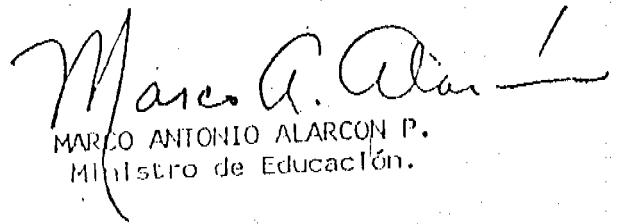 Marco A. Alar
MARCO ANTONIO ALARCON P.
Ministro de Educación.